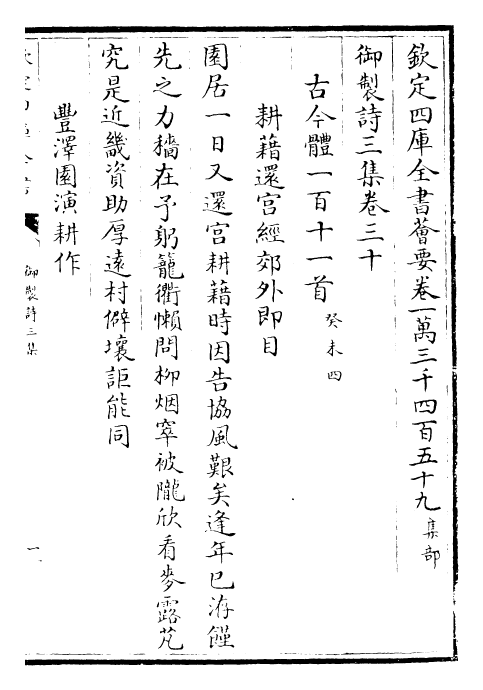 欽定四庫全書薈要卷一萬三千四百五十九集部
御製詩三集卷三十
古今體一百十一首癸未四
耕藉還宮經郊外即目
園居一日又還宮耕藉時因告協風艱矣逢年已洊饉
先之力穡在予躬籠衢懶問柳烟窣被隴欣看麥露芃
究是近畿資助厚遠村僻壤詎能同
豐澤園演耕作
御製詩三集
一